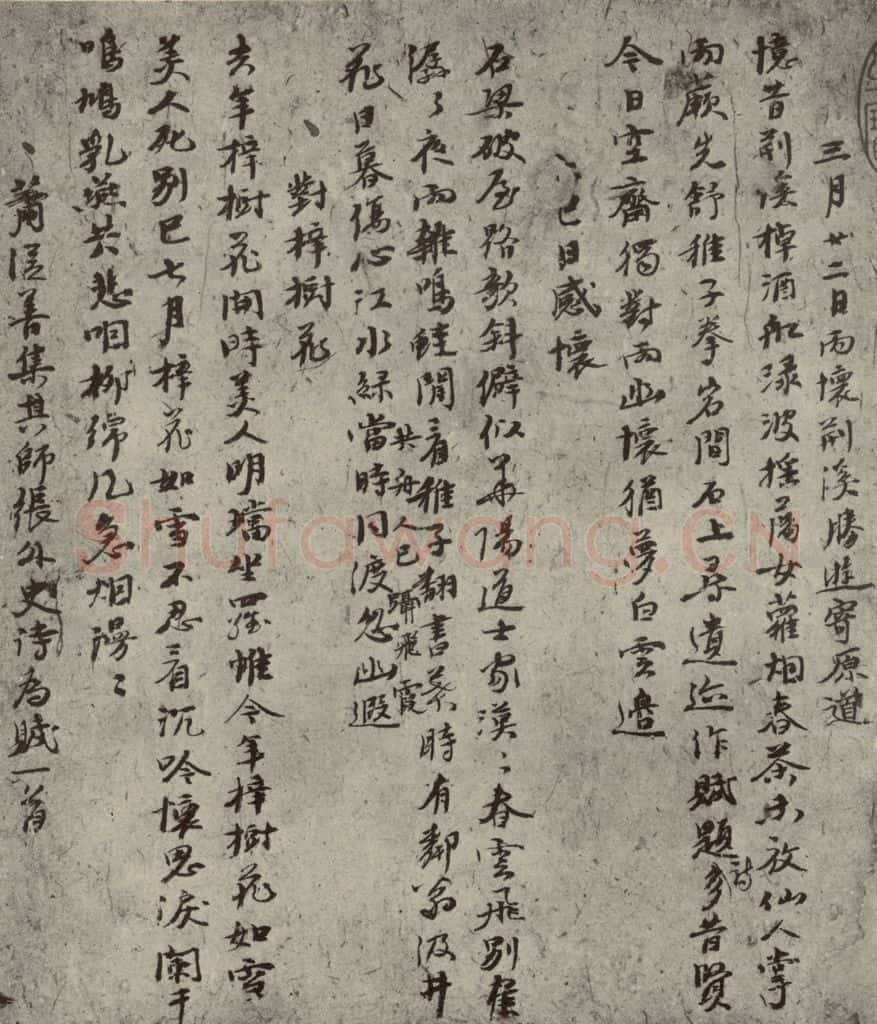 三月廿二日雨懷荊溪勝遊寄原道
憶昔荊溪棹酒船淥波搖蕩女蘿烟春茶未放仙人掌
雨蕨先舒稚子拳岩間石上尋遺迹作賦題詩多昔賢
今日空齋獨對雨幽懷猶夢白雲邊
己日感懷
石梁破屋路欹斜僻似華陽道士家漠〻春雲飛別崦
潺〻夜雨雜鳴蛙閒看稚子翻書葉時有鄰翁汲井
花日暮傷心江水綠當時同渡忽幽遐
共舟人已 飛霞
對梓樹花
去年梓樹花開時美人明璫坐羅帷今年梓樹花如雪
美人死別已七月梓花如雪不忍看沉吟懷思淚闌干
鳴鳩乳燕共悲咽柳綿風急烟漫〻
蕭 善集其師張外史詩為賦一首
Shufawang.CN